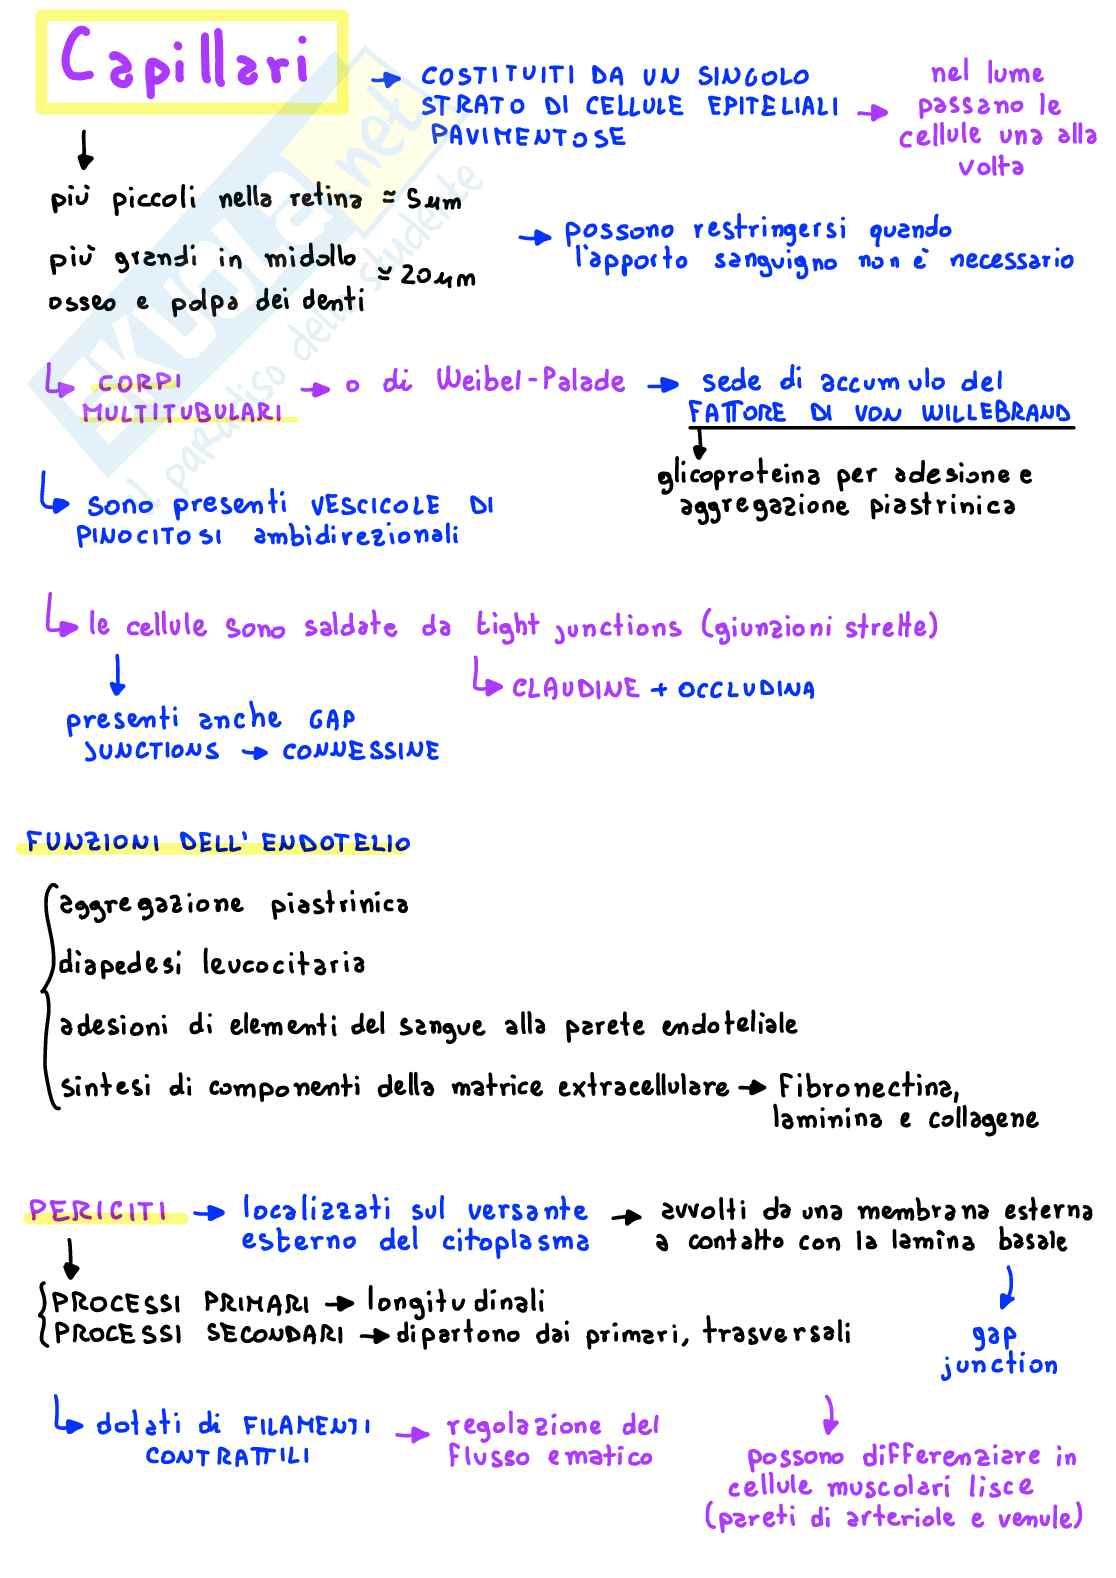 Capillari
→ COSTITUITI DA UN SINGOLO
STRATO DI CELLULE EPITELIALI
PAVIMENTOSE
→ nel lume
passano le
cellule una alla
volta
più piccoli nella retina ≃ 5 µm
più grandi in midollo
osseo e polpa dei denti ≃ 20 µm
→ possono restringersi quando
l'apporto sanguigno non è necessario
CORPI
MULTITUBULARI → o di Weibel-Palade → sede di accumulo del
FATTORE DI VON WILLEBRAND
glicoproteina per adesione e
aggregazione piastrinica
sono presenti VESCICOLE DI
PINOCITOSI ambidirezionali
le cellule sono saldate da tight junctions (giunzioni strette)
CLAUDINE + OCCLUDINA
presenti anche GAP
JUNCTIONS → CONNESSINE
FUNZIONI DELL'ENDOTELIO
aggregazione piastrinica
diapedesi leucocitaria
adesioni di elementi del sangue alla parete endoteliale
sintesi di componenti della matrice extracellulare → Fibronectina,
laminina e collagene
PERICITI → localizzati sul versante
esterno del citoplasma
→ avvolti da una membrana esterna
a contatto con la lamina basale
gap
junction
PROCESSI PRIMARI → longitudinali
PROCESSI SECONDARI → dipartono dai primari, trasversali
dotati di FILAMENTI
CONTRATTILI
→ regolazione del
flusso ematico
possono differenziare in
cellule muscolari lisce
(pareti di arteriole e venule)
SKUOLA.net
il paradiso dello studente